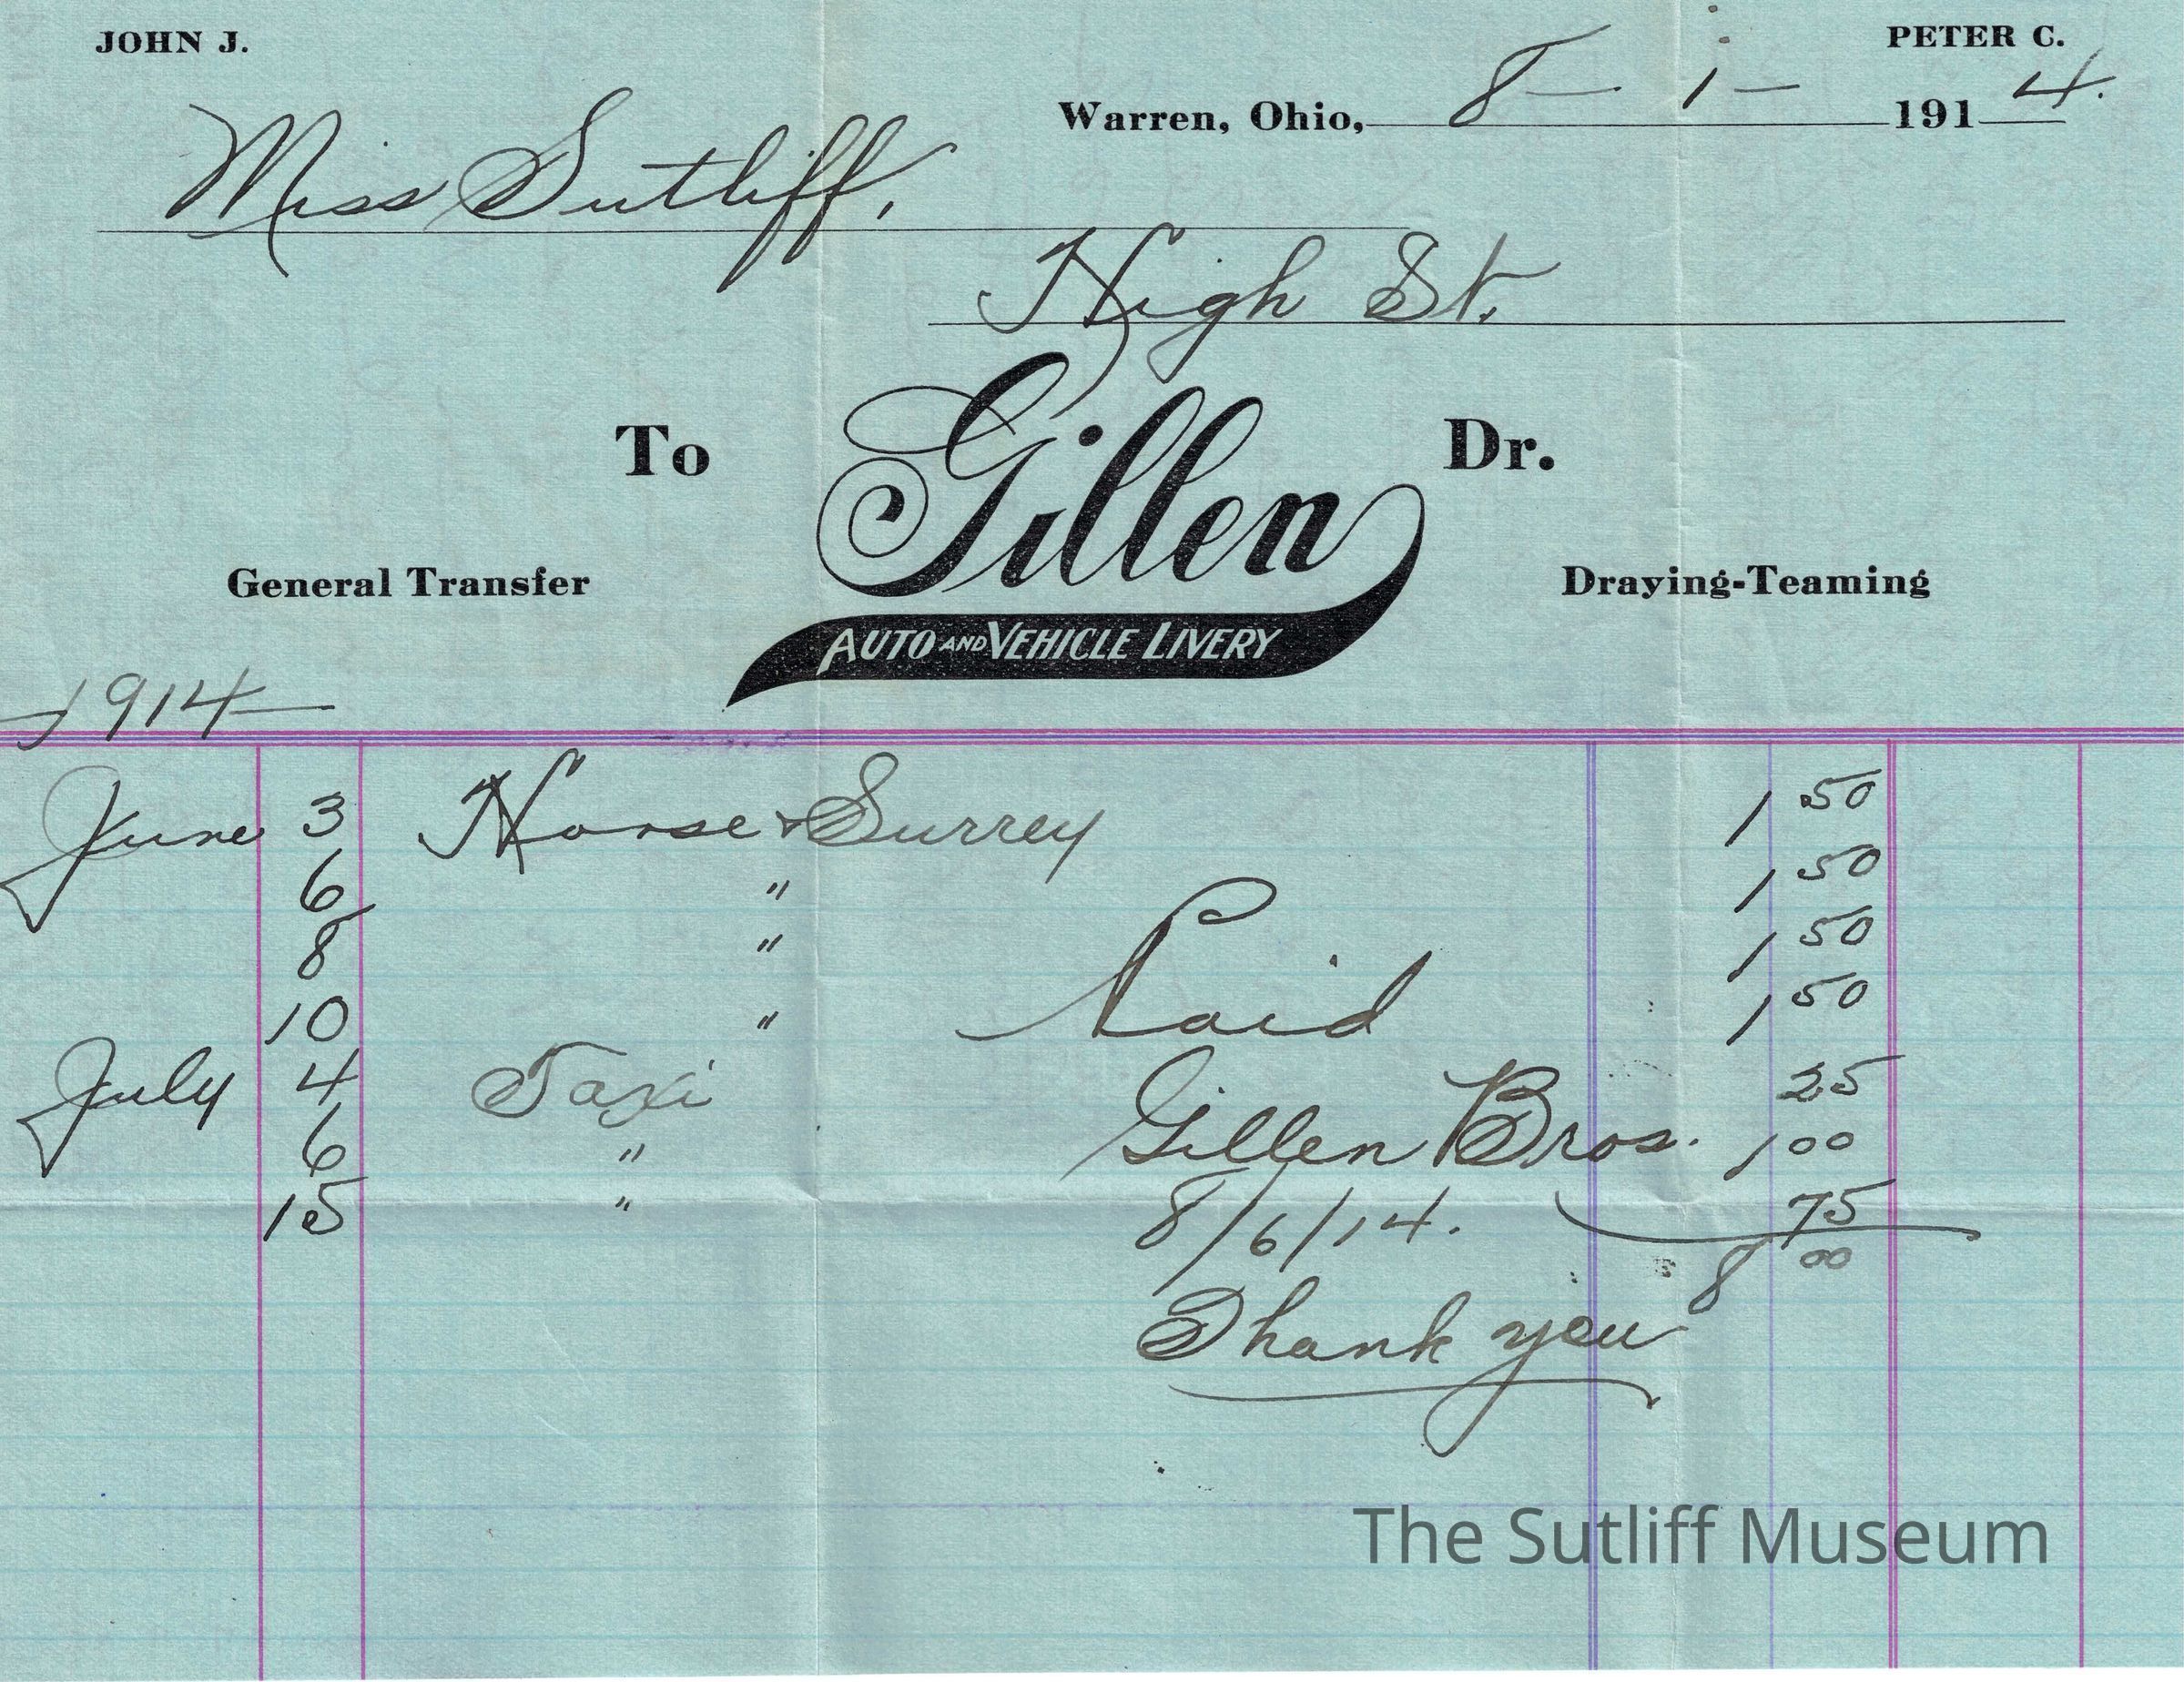 JOHN J. PETER C.
Warren, Ohio, 8 - 1 - 1914.
Miss Sutliff,
High St.
To Gillen Dr.
General Transfer Draying-Teaming
AUTO AND VEHICLE LIVERY
1914
June 3 Horse & Surrey 1 50
6 " 1 50
8 " 1 50
10 " 1 50
Paid
July 4 Taxi 25
Gillen Bros.
6 " 1 00
15 " 75
8/6/14.
8 00
Thank you
The Sutliff Museum